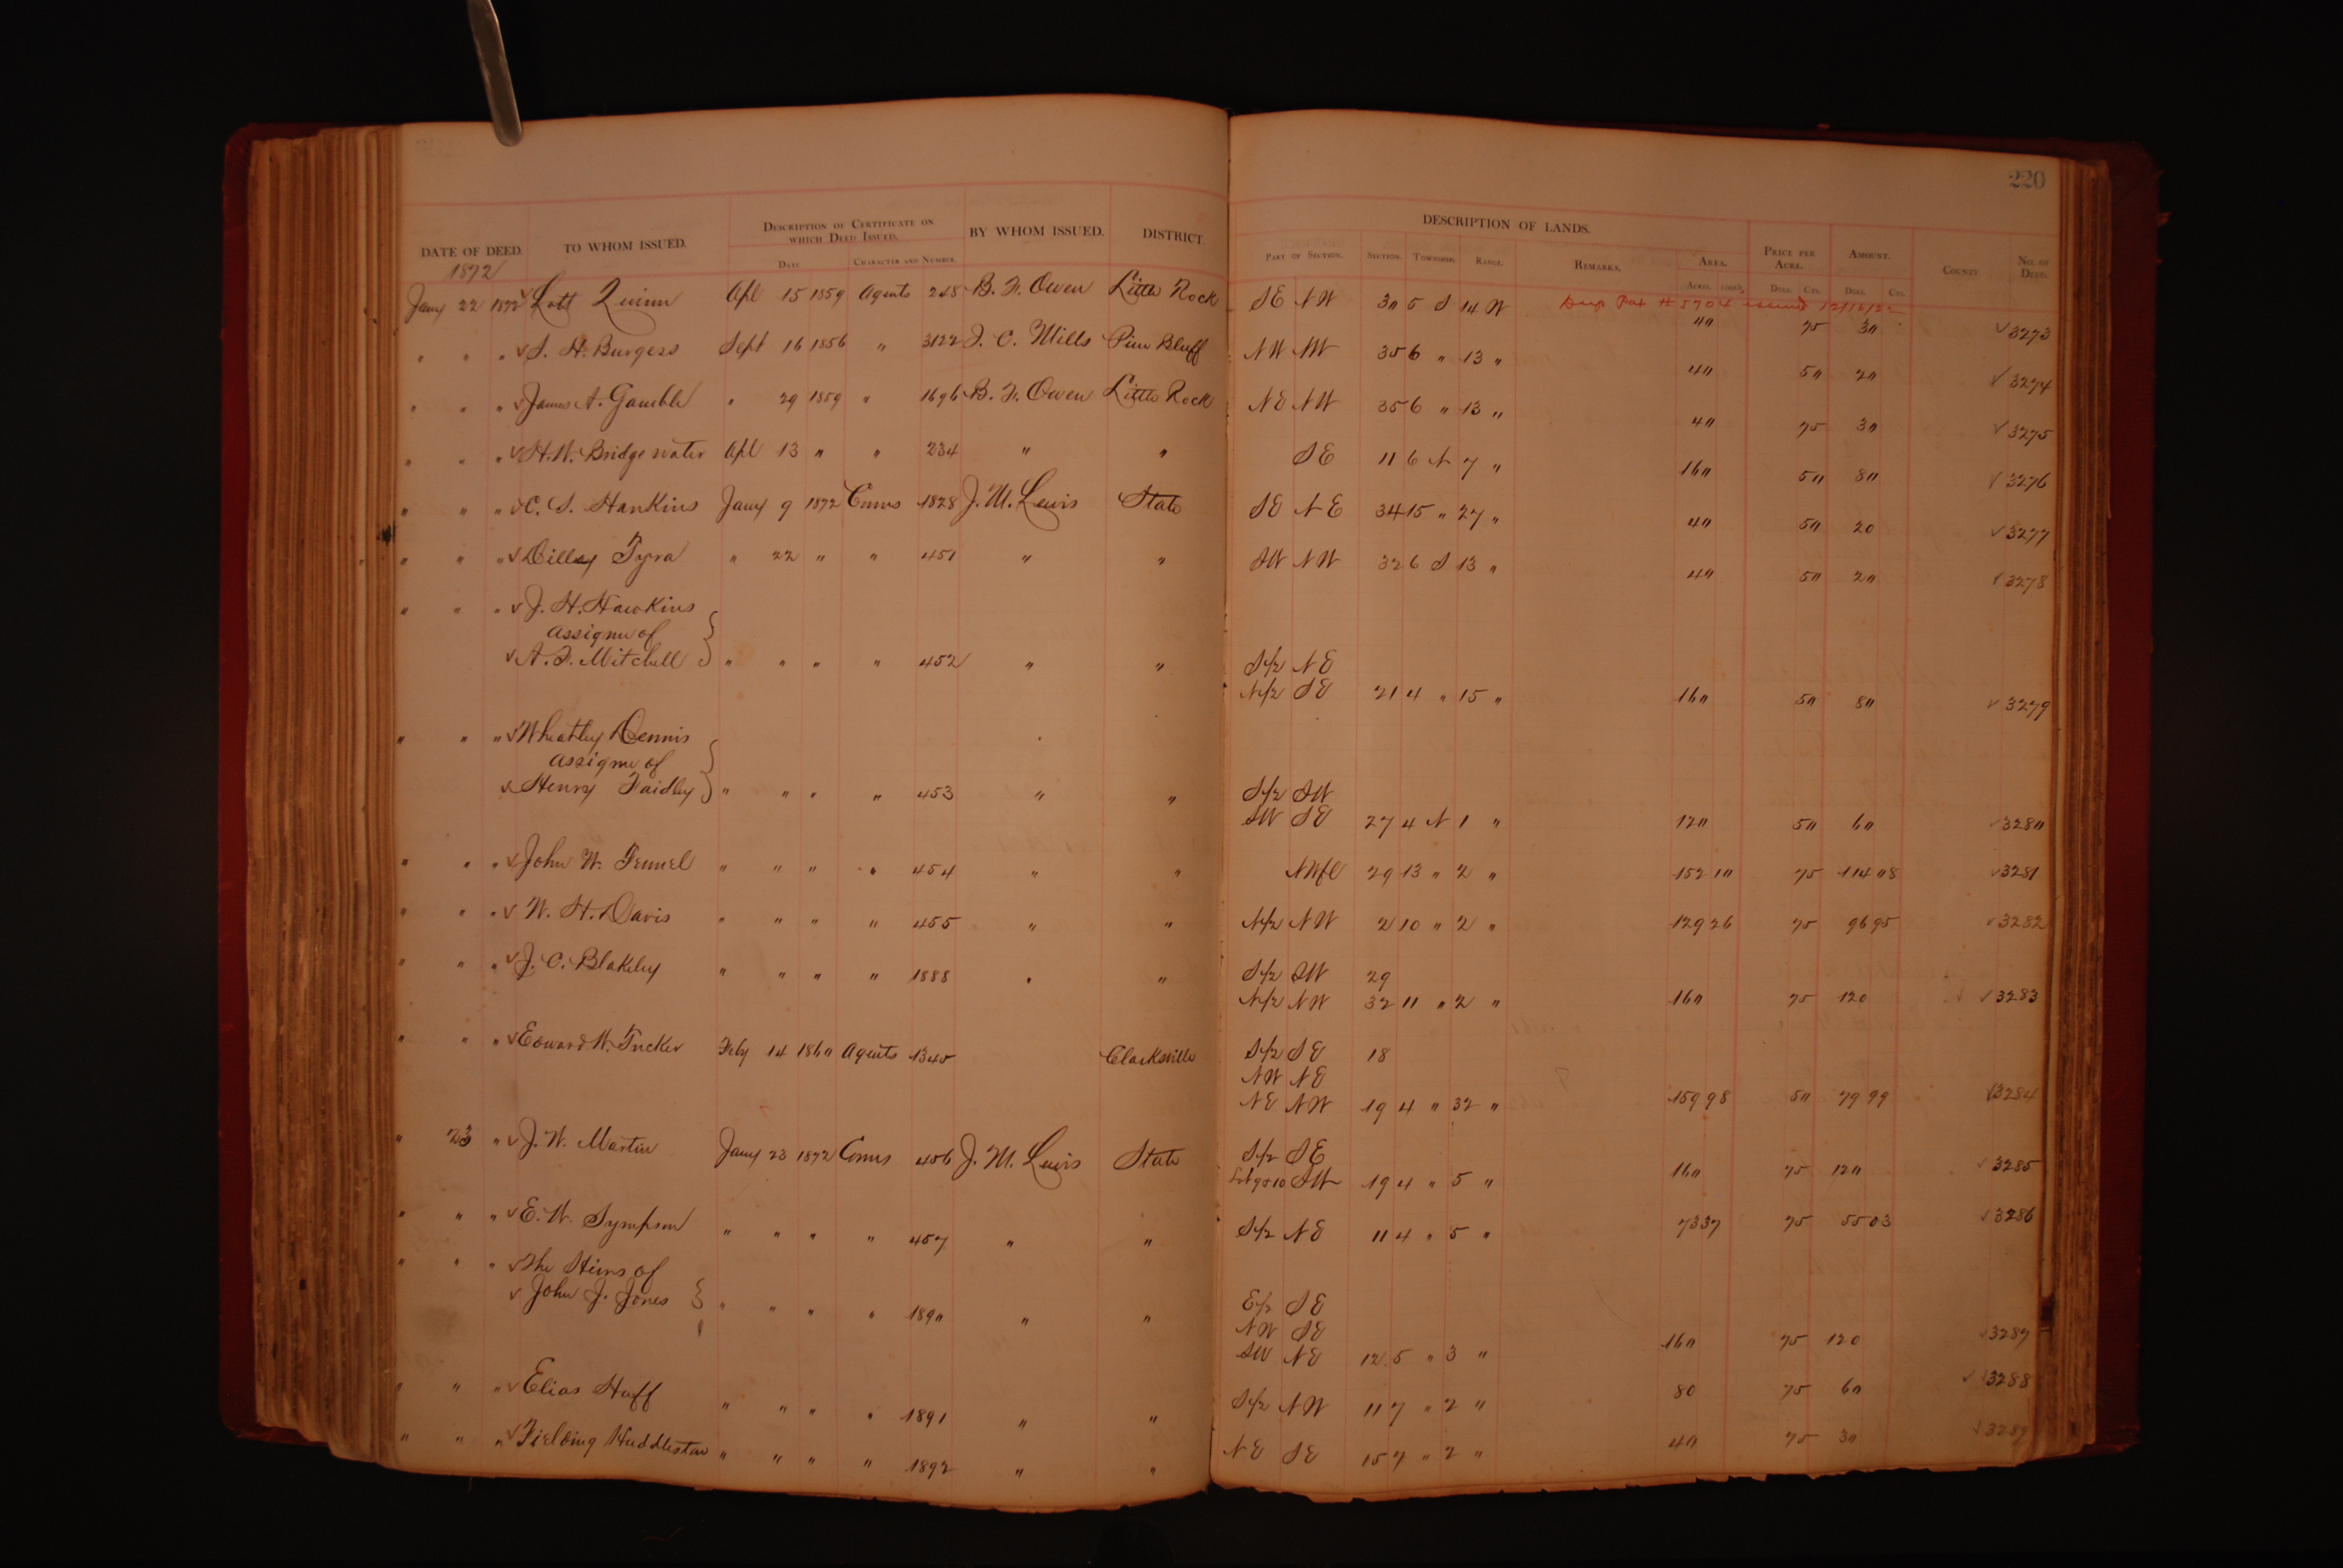 220
DATE OF DEED. TO WHOM ISSUED. DESCRIPTION OF CERTIFICATE ON WHICH DEED ISSUED. BY WHOM ISSUED. DISTRICT. DESCRIPTION OF LANDS. PRICE PER ACRE. AMOUNT. COUNTY NO. OF DEED.
DATE CHARACTER AND NUMBER. PART OF SECTION. SECTION. TOWNSHIP. RANGE. REMARKS. AREA.
ACRES. 100ths. DOLL. CTS. DOLL. CTS.
1872
Jany 22 1872 Lott Quinn Apl 15 1859 Agents 248 B. F. Owen Little Rock SE NW 30 5 S 14 W Dup Pat # 5704 issued 12/16/22 40 75 30 3273
" " " S. H. Burgess Sept 16 1856 " 3122 J. C. Mills Pine Bluff NW NW 35 6 " 13 " 40 50 20 3274
" " " James A. Gamble " 29 1859 " 1696 B. F. Owen Little Rock NE NW 35 6 " 13 " 40 75 30 3275
" " " H. W. Bridgewater Apl 13 " " 234 " " SE 11 6 N 7 " 160 50 80 3276
" " " C. S. Hankins Jany 9 1872 Comrs 1828 J. M. Lewis State SE NE 34 15 " 27 " 40 50 20 3277
" " " Dilley Tyra " 22 " " 451 " " SW NW 32 6 S 13 " 40 50 20 3278
" " " J. H. Hawkins
assignee of
A. F. Mitchell " " " " 452 " " S/2 NE
N/2 SE 21 4 " 15 " 160 50 80 3279
" " " Wheatley Dennis
assignee of
Henry Faidley " " " " 453 " " S/2 SW
SW SE 27 4 N 1 " 120 50 60 3280
" " " John W. Fennel " " " " 454 " " NWfl 29 13 " 2 " 152 10 75 114 08 3281
" " " W. H. Davis " " " " 455 " " N/2 NW 2 10 " 2 " 129 26 75 96 95 3282
" " " J. C. Blakeley " " " " 1888 " " S/2 SW 29
N/2 NW 32 11 " 2 " 160 75 120 3283
" " " Edward W. Tucker Feby 14 1860 Agents 1340 Clarksville S/2 SE 18
NW NE
NE NW 19 4 " 32 " 159 98 50 79 99 3284
" 23 " J. W. Martin Jany 23 1872 Comrs 456 J. M. Lewis State S/2 SE
Lot 9&10 SW 19 4 " 5 " 160 75 120 3285
" " " E. W. Sympson " " " " 457 " " S/2 NE 11 4 " 5 " 73 37 75 55 03 3286
" " " The Heirs of
John J. Jones " " " " 1890 " " E/2 SE
NW SE
SW NE 12 5 " 3 " 160 75 120 3287
" " " Elias Huff " " " " 1891 " " S/2 NW 11 7 " 2 " 80 75 60 3288
" " " Fielding Huddleston " " " " 1892 " " NE SE 15 7 " 2 " 40 75 30 3289